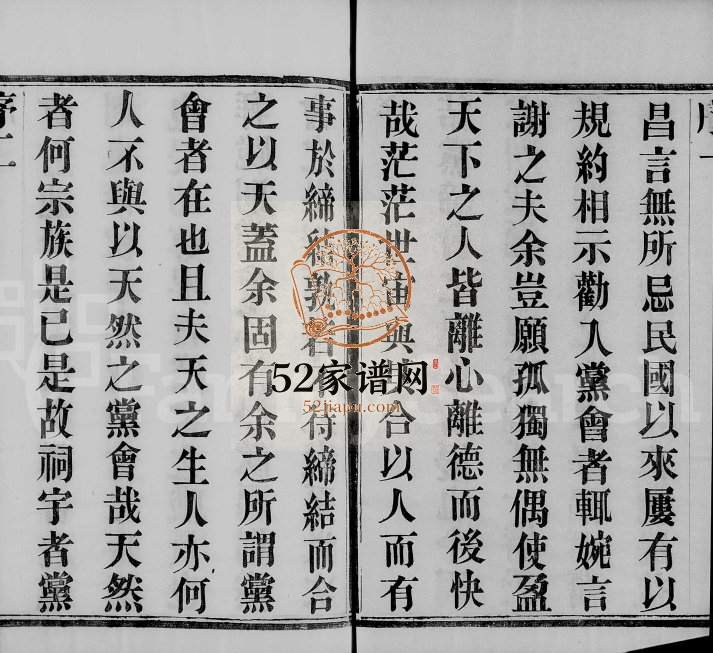 序一
昌言無所忌民國以來屢有以
規約相示勸入黨會者輒婉言
謝之夫余豈願孤獨無偶使盈
天下之人皆離心離德而後快
哉茫茫世宙與其合以人而有
事於締結孰若不待締結而合
之以天蓋余固有余之所謂黨
會者在也且夫天之生人亦何
人不與以天然之黨會哉天然
者何宗族是已是故祠宇者黨
序二
52家谱网
52jiapu.com